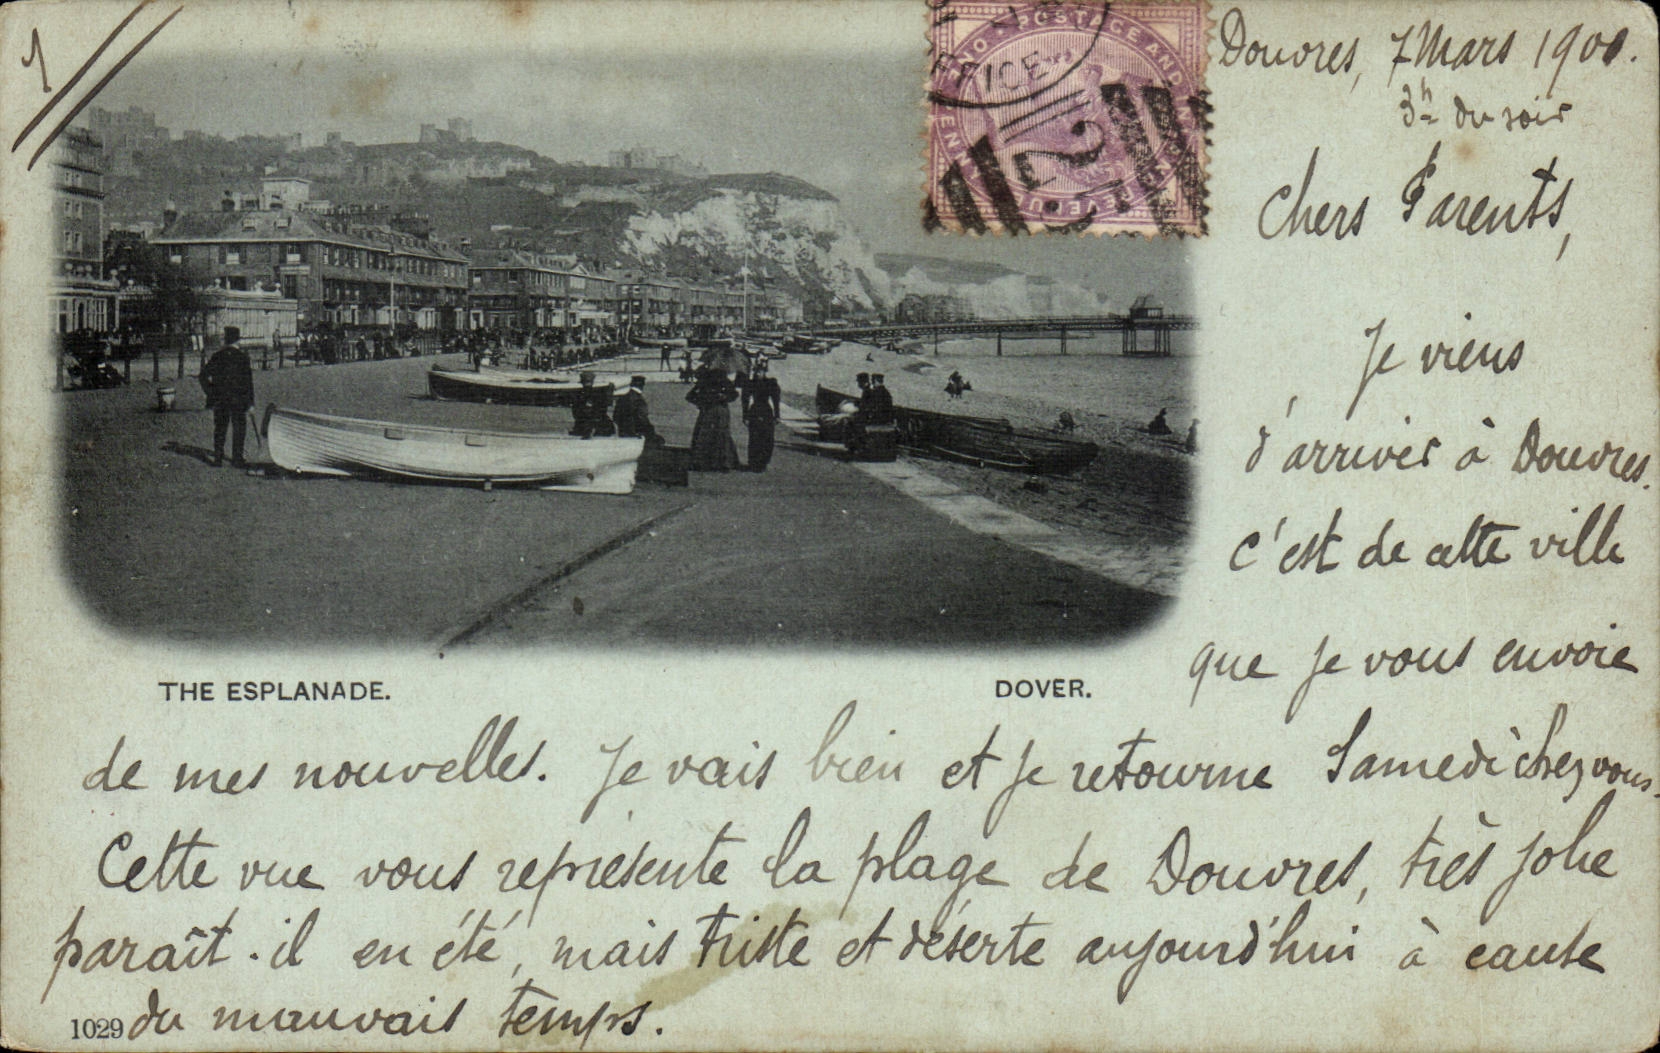 1
POSTAGE AND IN
REVENUE
ONE PENNY
OFFICE
Douvres, 7 Mars 1900.
3h du soir
Chers Parents,
Je viens
d'arriver à Douvres.
C'est de cette ville
que je vous envoie
THE ESPLANADE. DOVER.
de mes nouvelles. Je vais bien et je retourne Samedi chez vous.
Cette vue vous représente la plage de Douvres, très jolie
paraît-il en été, mais triste et déserte aujourd'hui à cause
1029 du mauvais temps.